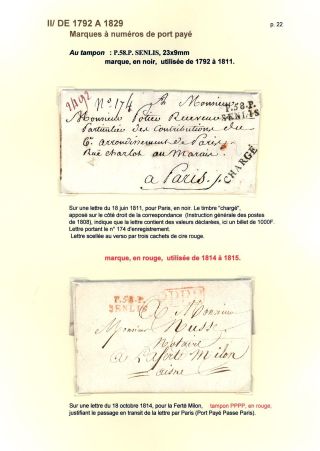 II/ DE 1792 A 1829
p. 22
Marques à numéros de port payé
Au tampon : P.58.P. SENLIS, 23x9mm
marque, en noir, utilisée de 1792 à 1811.
N° 174 A Monsieur
P.58.P.
SENLIS
Monsieur Votre Receveur
Particulier des Contributions du
6e arrondissement de Paris
Rue Charlot au Marais
CHARGÉ
A Paris
Sur une lettre du 18 juin 1811, pour Paris, en noir. Le timbre "chargé",
apposé sur le côté droit de la correspondance (Instruction générale des postes
de 1808), indique que la lettre contient des valeurs déclarées, ici un billet de 1000F.
Lettre portant le n° 174 d'enregistrement.
Lettre scellée au verso par trois cachets de cire rouge.
marque, en rouge, utilisée de 1814 à 1815.
P.58.P.
SENLIS
A Monsieur
Monsieur Husse
Notaire
a Laferté Milon
aisne
Sur une lettre du 18 octobre 1814, pour la Ferté Milon, tampon PPPP, en rouge,
justifiant le passage en transit de la lettre par Paris (Port Payé Passe Paris).